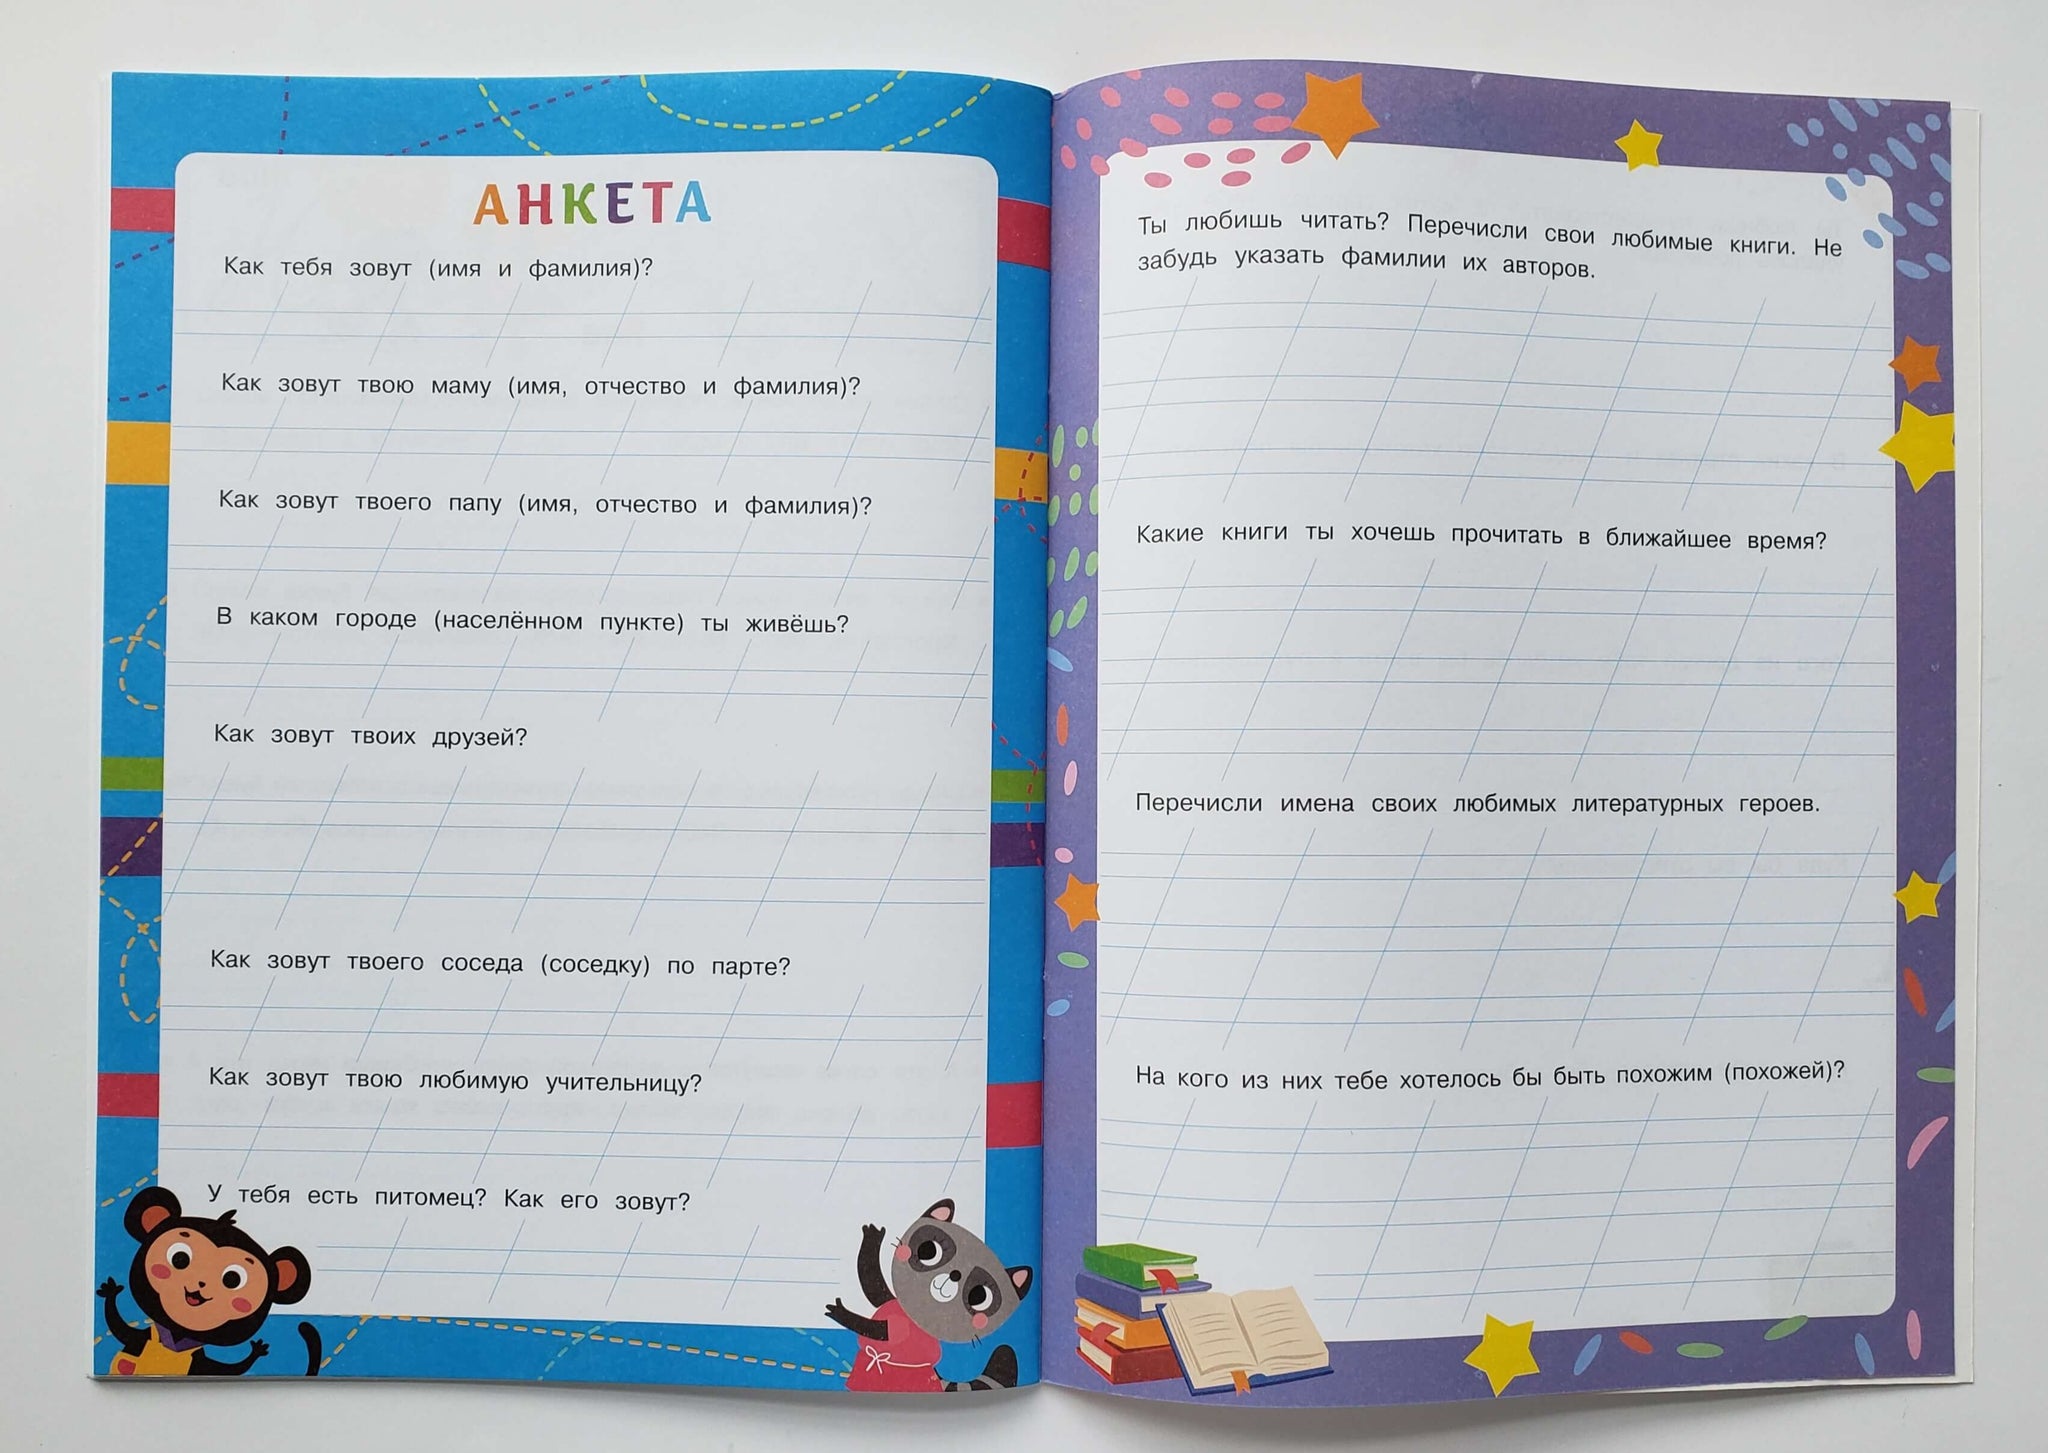 АНКЕТА
Как тебя зовут (имя и фамилия)?
Как зовут твою маму (имя, отчество и фамилия)?
Как зовут твоего папу (имя, отчество и фамилия)?
В каком городе (населённом пункте) ты живёшь?
Как зовут твоих друзей?
Как зовут твоего соседа (соседку) по парте?
Как зовут твою любимую учительницу?
У тебя есть питомец? Как его зовут?
Ты любишь читать? Перечисли свои любимые книги. Не
забудь указать фамилии их авторов.
Какие книги ты хочешь прочитать в ближайшее время?
Перечисли имена своих любимых литературных героев.
На кого из них тебе хотелось бы быть похожим (похожей)?